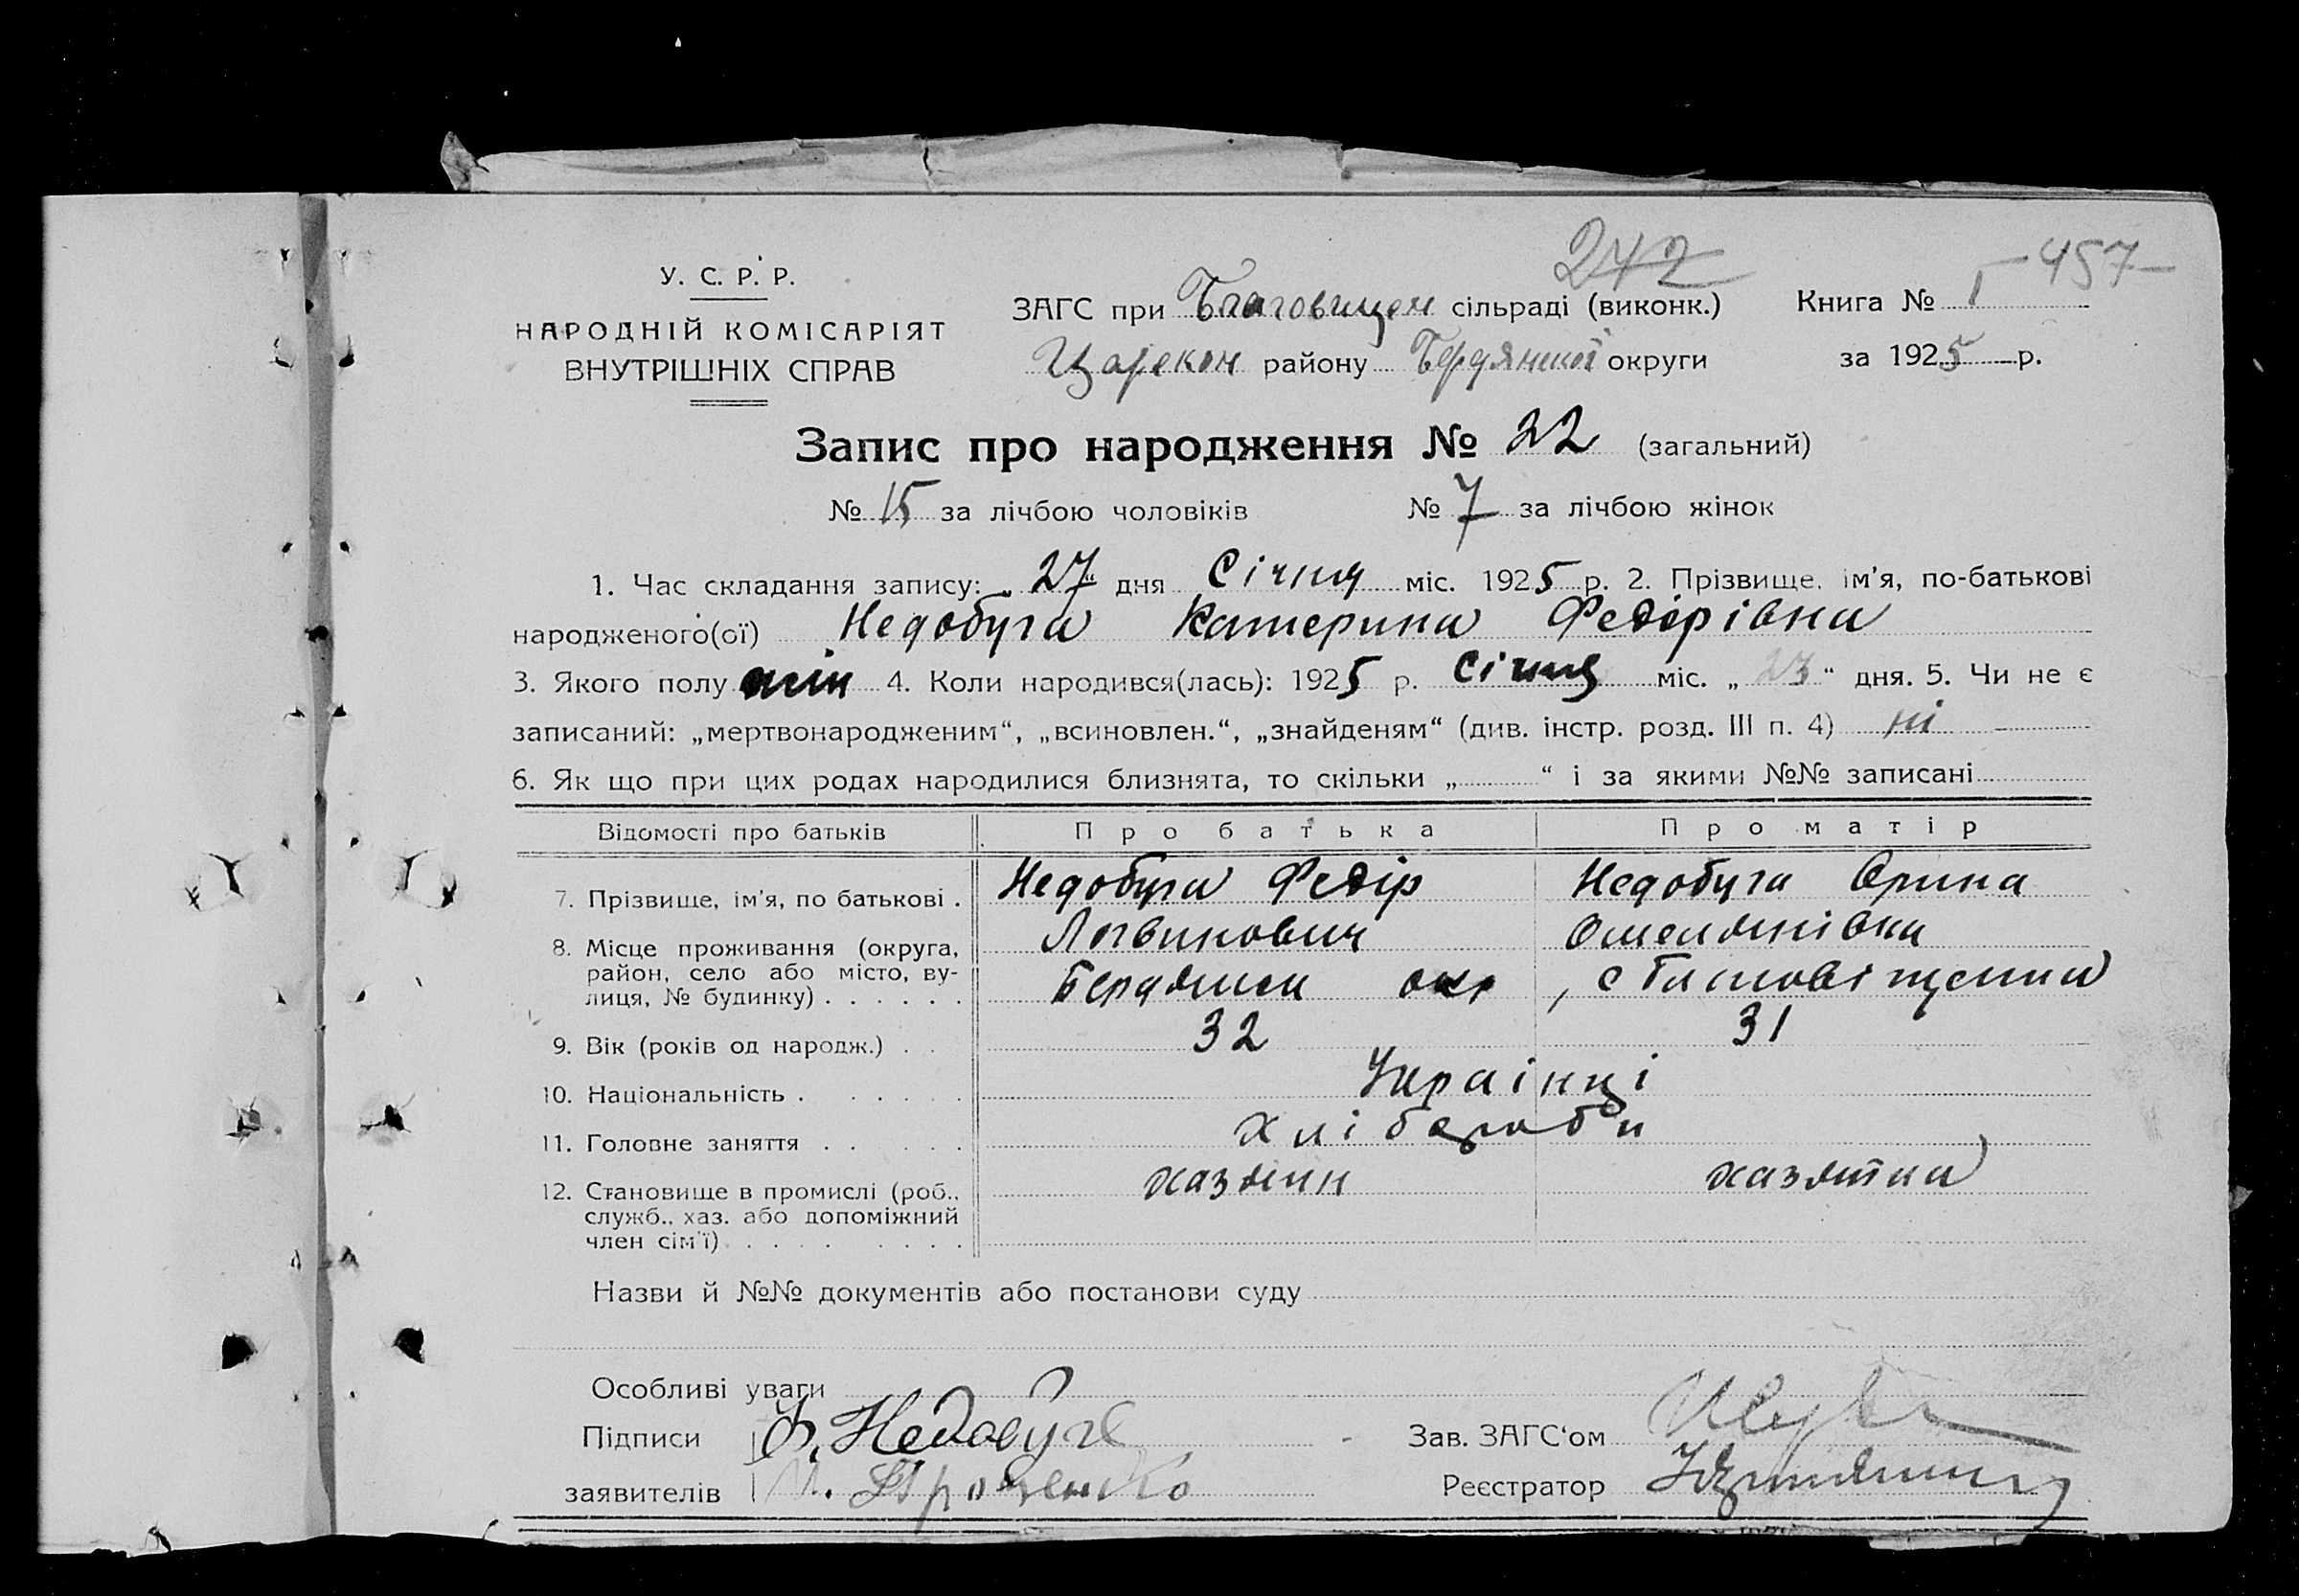 242
457
У. С. Р. Р.
НАРОДНІЙ КОМІСАРІЯТ
ВНУТРІШНІХ СПРАВ
ЗАГС при Благовищен сільраді (виконк.) Книга № 1
Царекон району Бердянської округи за 1925 р.
Запис про народження № 22 (загальний)
№ 15 за лічбою чоловіків № 7 за лічбою жінок
1. Час складання запису: „27“ дня Січня міс. 1925 р. 2. Прізвище, ім'я, по-батькові
народженого(ої) Недобуга Катерина Федірівна
3. Якого полу жін 4. Коли народився(лась): 1925 р. Січня міс. „23“ дня. 5. Чи не є
записаний: „мертвонародженим“, „всиновлен.“, „знайденям“ (див. інстр. розд. III п. 4) ні
6. Як що при цих родах народилися близнята, то скільки „ “ і за якими №№ записані
Відомості про батьків Про батька Про матір
7. Прізвище, ім'я, по батькові . Недобуга Федір Недобуга Орина
8. Місце проживання (округа, Логвинович Омелянівна
район, село або місто, ву-
лиця, № будинку) . . . . . . Бердянськ окр , с Благовіщенка
9. Вік (років од народж.) . . 32 31
10. Національність . . . . . . Українці
11. Головне заняття . . . . . хлібороби
12. Становище в промислі (роб., хазяин хазяйка
служб., хаз. або допоміжний
член сім'ї) . . . . . . . .
Назви й №№ документів або постанови суду
Особливі уваги
Підписи Ф. Недобуга Зав. ЗАГС'ом
заявителів Реєстратор